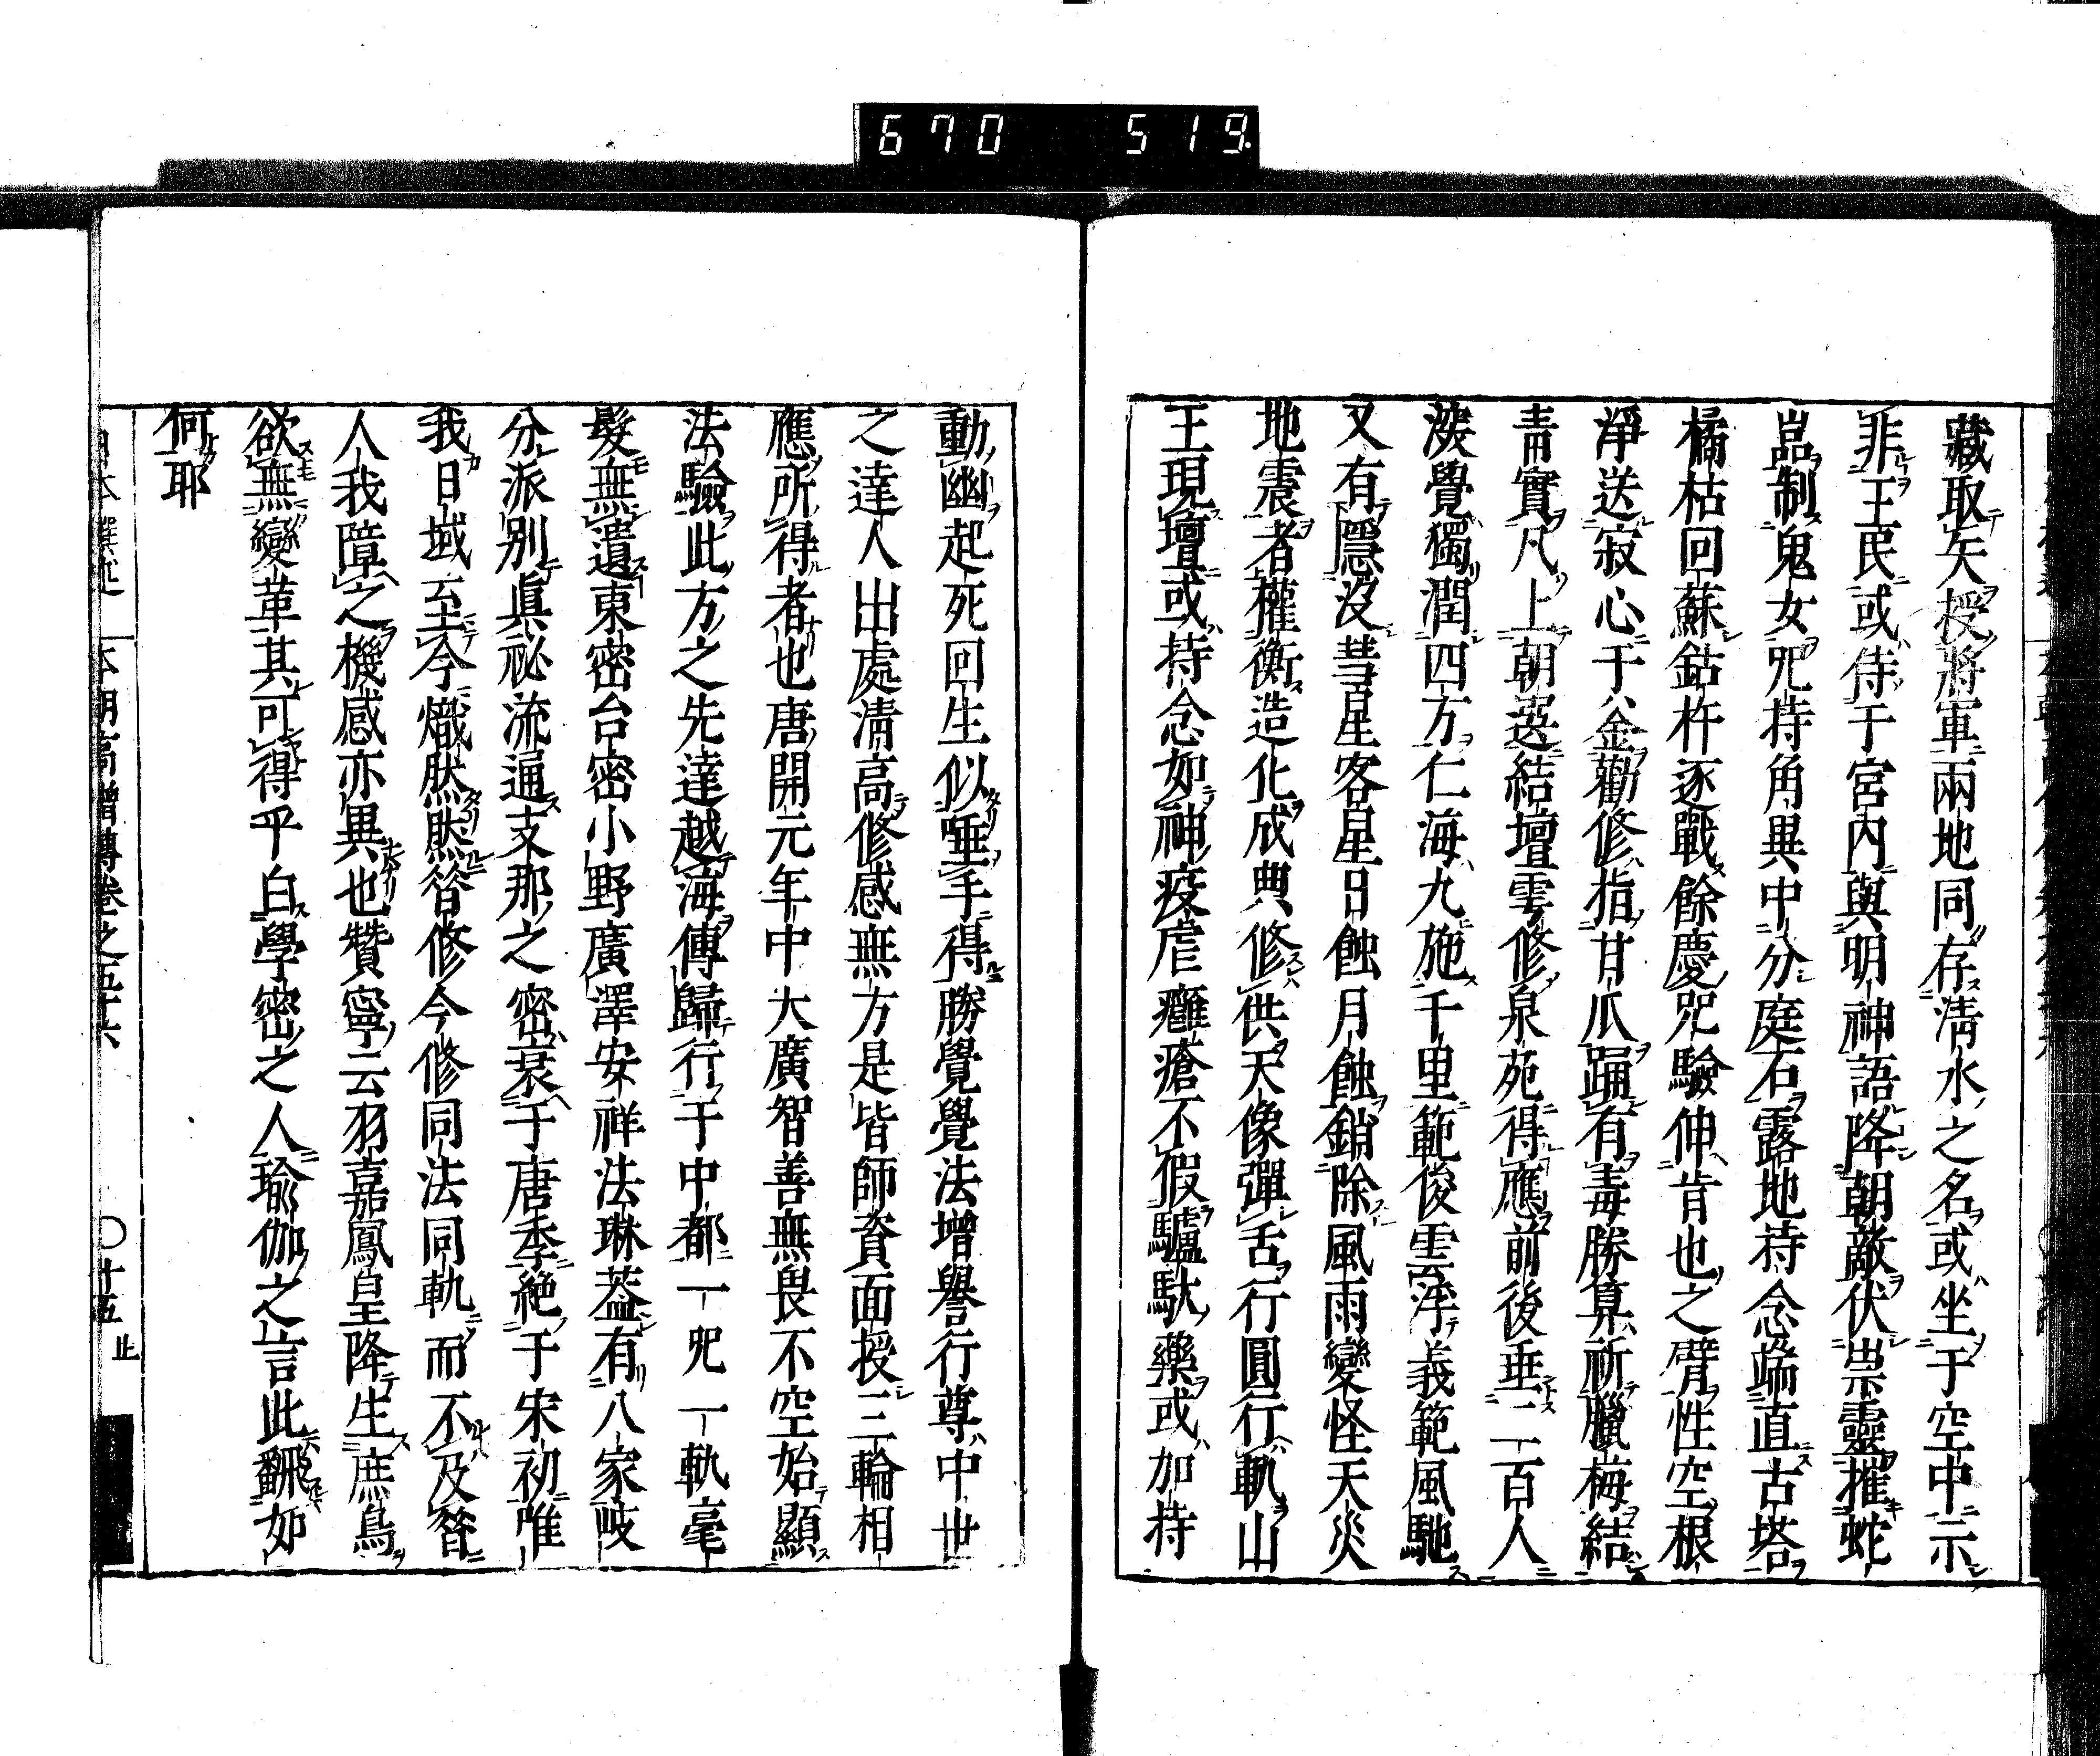 670 519
藏取矢授將軍兩地同存淸水之名或坐于空中示
非王民或侍于宮內與明神語降朝敵伏崇靈摧蛇
嵓制鬼女咒持角異中分庭石露地持念端直古塔
橘枯回蘇鈷杵逐戰餘慶咒驗伸肯也之臂性空根
淨送寂心于八金勸修指甘瓜踊有毒勝算祈臘梅結
靑實凡上朝送結壇雩修泉苑得應前後垂二百人
淡覺獨潤四方仁海九施千里範俊雲浮義範風馳
又有隱沒彗星客星日蝕月蝕銷除風雨變怪天災
地震者權衡造化成典修供天像彈舌行圓行軌山
王現壇或持念如神疫虐癰瘡不假驢馱藥或加持
動幽起死回生似唾手得勝覺覺法增譽行尊中世
之達人出處淸高修感無方是皆師資面授三輪相
應所得者也唐開元年中大廣智善無畏不空始顯
法驗此方之先達越海傳歸行于中都一咒一軌毫
髮無遺東密台密小野廣澤安祥法琳葢有八家岐
分派別眞祕流通支那之密衰于唐季絶于宋初唯
我日域至今熾然然昝修今修同法同軌而不及昝
人我障之機感亦異也贊寧云羽嘉鳳皇降生庶鳥
欲無變革其可得乎白學密之人瑜伽之言此飜如
何耶
日本撰述 本朝高僧傳卷之五十六 〇十五 止